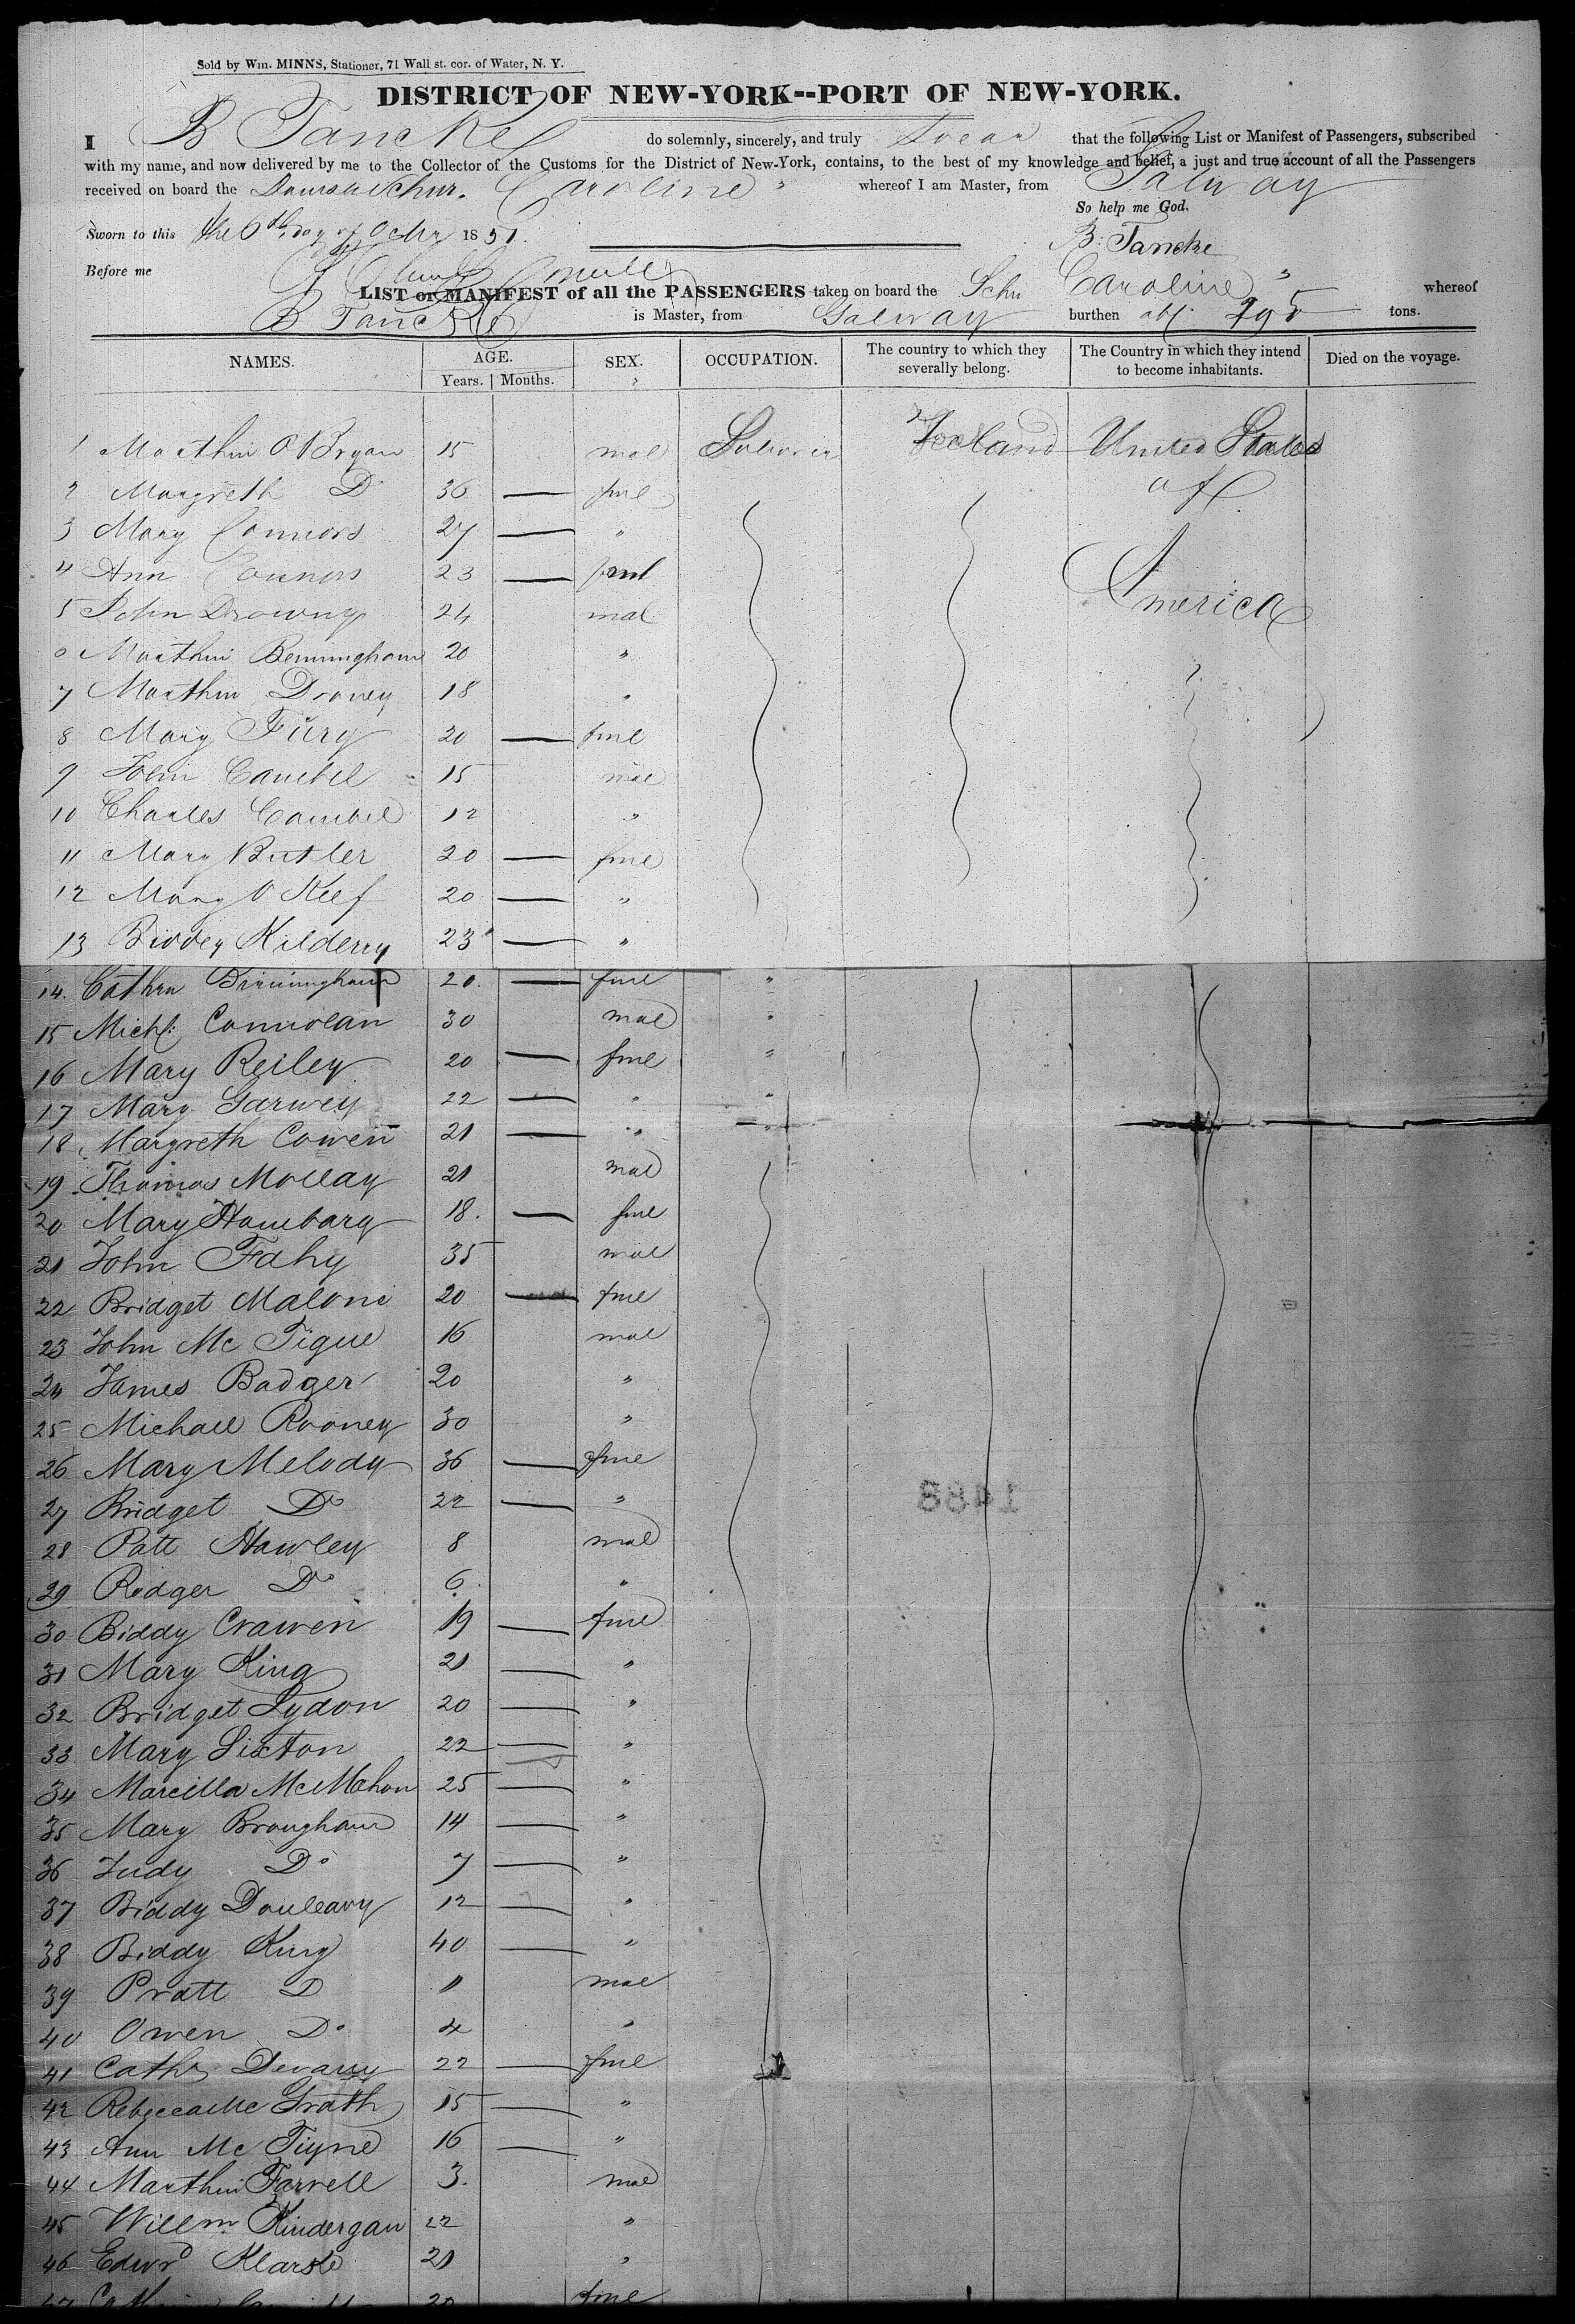 Sold by Wm. MINNS, Stationer, 71 Wall st. cor. of Water, N. Y.
DISTRICT OF NEW-YORK--PORT OF NEW-YORK.
I B Tancke do solemnly, sincerely, and truly swear that the following List or Manifest of Passengers, subscribed
with my name, and now delivered by me to the Collector of the Customs for the District of New-York, contains, to the best of my knowledge and belief, a just and true account of all the Passengers
received on board the Schnr. Caroline whereof I am Master, from Galway
So help me God.
Sworn to this the 6th day of Octbr 1851.
B. Tancke
Before me
LIST or MANIFEST of all the PASSENGERS taken on board the Schr Caroline whereof
B Tancke is Master, from Galway burthen abt. 295 tons.
NAMES. AGE. SEX. OCCUPATION. The country to which they severally belong. The Country in which they intend to become inhabitants. Died on the voyage.
Years. Months.
1 Marthin O Bryan 15 mal Ireland United States
2 Margreth Do 36 — fml of
3 Mary Connors 27 — "
4 Ann Connors 23 — fml America
5 John Drowny 24 mal
6 Marthin Benningham 20 "
7 Marthin Droney 18 "
8 Mary Fury 20 — fml
9 John Cambel 15 mal
10 Charles Cambel 12 "
11 Mary Butler 20 — fml
12 Mary O Keef 20 — "
13 Biddey Kilderry 23 — "
14. Cathrn Birmingham 20. — fml "
15 Michl: Connolan 30 mal "
16 Mary Reiley 20 — fml "
17 Mary Garwey 22 — " "
18 Margreth Cowen 21 — " "
19 Thomas Mollay 21 mal
20 Mary Hambary 18. — fml
21 John Fahy 35 mal
22 Bridget Maloni 20 — fml
23 John Mc Tigue 16 mal
24 James Badger 20 "
25 Michael Rooney 30 "
26 Mary Melody 36 — fml
27 Bridget Do 22 — "
28 Patt Hawley 8 mal
29 Rodger Do 6. "
30 Biddy Crawen 19 — fml
31 Mary King 21 — "
32 Bridget Lydon 20 — "
33 Mary Sixton 22 — "
34 Marcilla McMahon 25 — "
35 Mary Brougham 14 — "
36 Judy Do 7 — "
37 Biddy Donleavy 12 — "
38 Biddy King 40 — "
39 Pratt D mal
40 Owen Do 4 "
41 Cathr Devany 22 — fml
42 Rebecca Mc Grath 15 — "
43 Ann Mc Tiyne 16 — "
44 Marthin Farrell 3. mal
45 Willm Kindergan 22 "
46 Edwrd Klarke 21 "
47 20 fml
1488